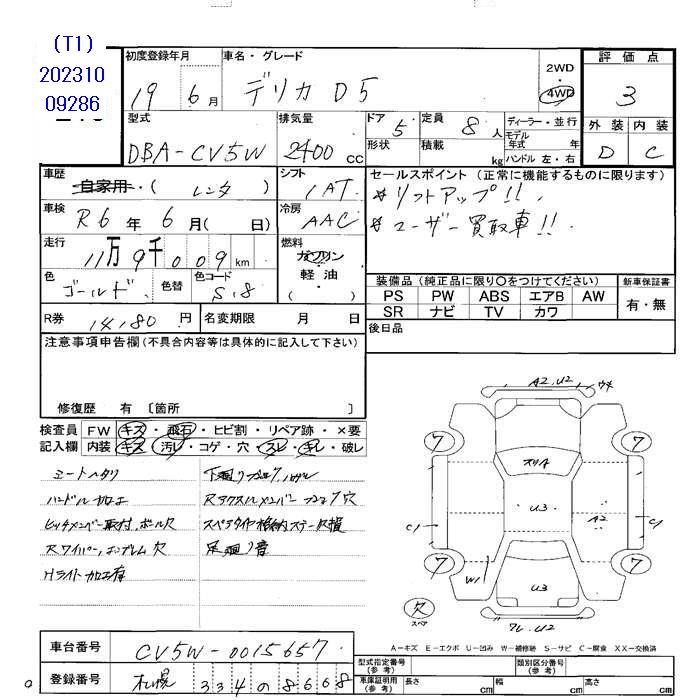 (T1)
202310
09286
初度登録年月
19 6月
車名・グレード
デリカ D5
2WD
・
4WD
評価点
3
外装 内装
D C
型式
DBA-CV5W
排気量
2400 CC
ドア 5
形状
定員 8人
積載 kg
ディーラー・並行
モデル年式 年
ハンドル 左・右
車歴
自家用・( レンタ )
シフト
1AT
セールスポイント (正常に機能するものに限ります)
*リフトアップ!!
*ユーザー買取車!!
車検
R6年 6月( 日)
冷房
AAC
走行
11万9千009km
燃料
ガソリン
軽油
( )
色
ゴールド
色替
色コード
S18
装備品 (純正品に限り○をつけてください)
新車保証書
PS PW ABS エアB AW
SR ナビ TV カワ
有・無
R券
14180円
名変期限 月 日
後日品
注意事項申告欄 (不具合内容等は具体的に記入して下さい)
修復歴 有 〔箇所 〕
検査員 FW キズ・飛石・ヒビ割・リペア跡・×要
記入欄 内装 キズ・汚レ・コゲ・穴・スレ・キレ・破レ
シートヘタリ
ハンドル加工
ヒッチメンバー取付、ボール欠
Rワイパー、エンブレム欠
Hライト加工有
下廻り
スペアタイヤ格納ステー欠損
足廻り音
A2.U2 ウキ
7 7
スリA
U3
A2
C1 C1
7 7
W1
U3
欠
スペア
ワレ.U2
A-キズ E-エクボ U-凹み W-補修跡 S-サビ C-腐食 XX-交換済
車台番号
CV5W-0015657
登録番号
札幌 334 の 8668
型式指定番号
(参考)
類別区分番号
(参考)
車庫証明用
(参考)
長さ cm 幅 cm 高さ cm